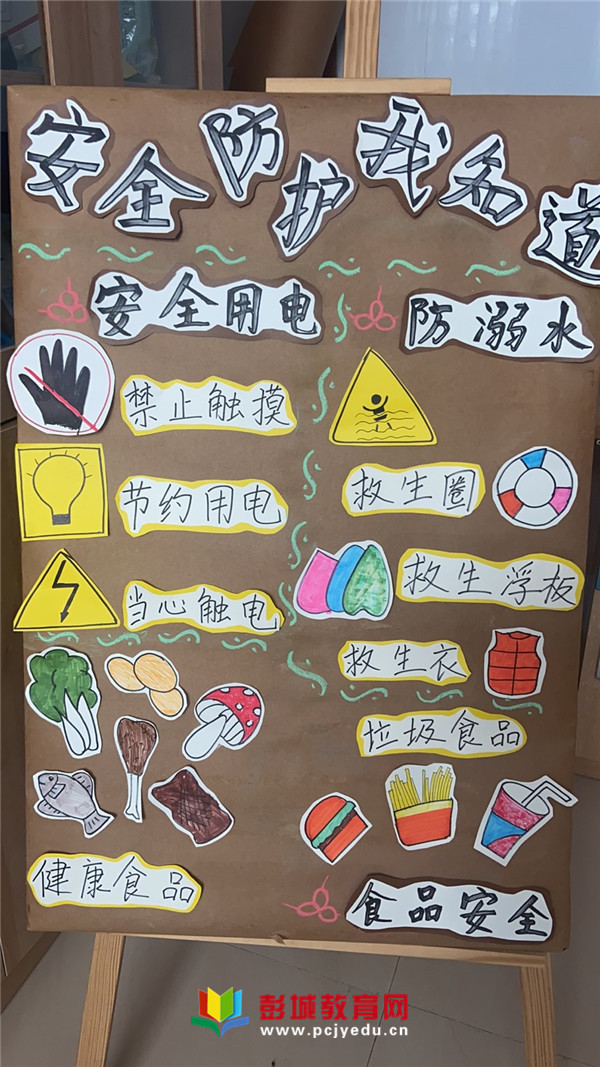 安全防护我知道
安全用电
防溺水
禁止触摸
节约用电
救生圈
当心触电
救生浮板
救生衣
垃圾食品
健康食品
食品安全
彭城教育网
www.pcjyedu.cn